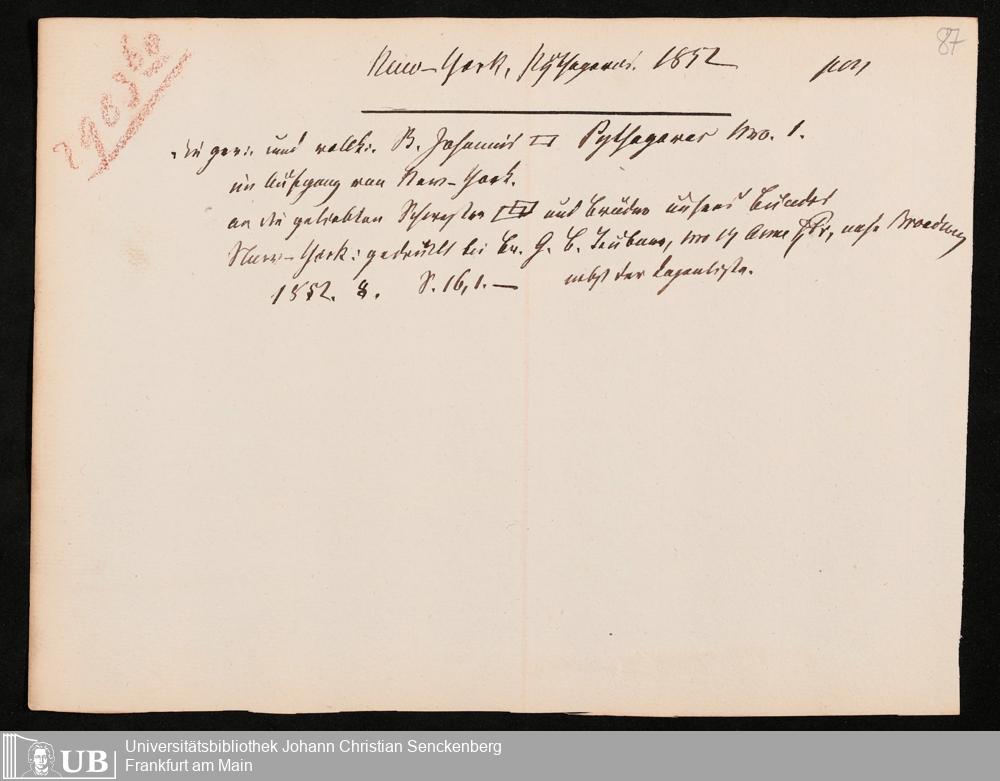 87
290360
New-York, Pythagoras. 1852
Die ger: und vollk: St. Johannis ▭ Pythagoras Nro. 1.
im Aufgang von New-York.
an die geliebten Schwester und Brüder unsers Bundes
New-York: gedruckt bei Br. G. B. Teubner, No 17 Ann Str, nahe Broadway
1852. 8. S. 16, 1. — nebst der Logenliste.
UB Universitätsbibliothek Johann Christian Senckenberg
Frankfurt am Main